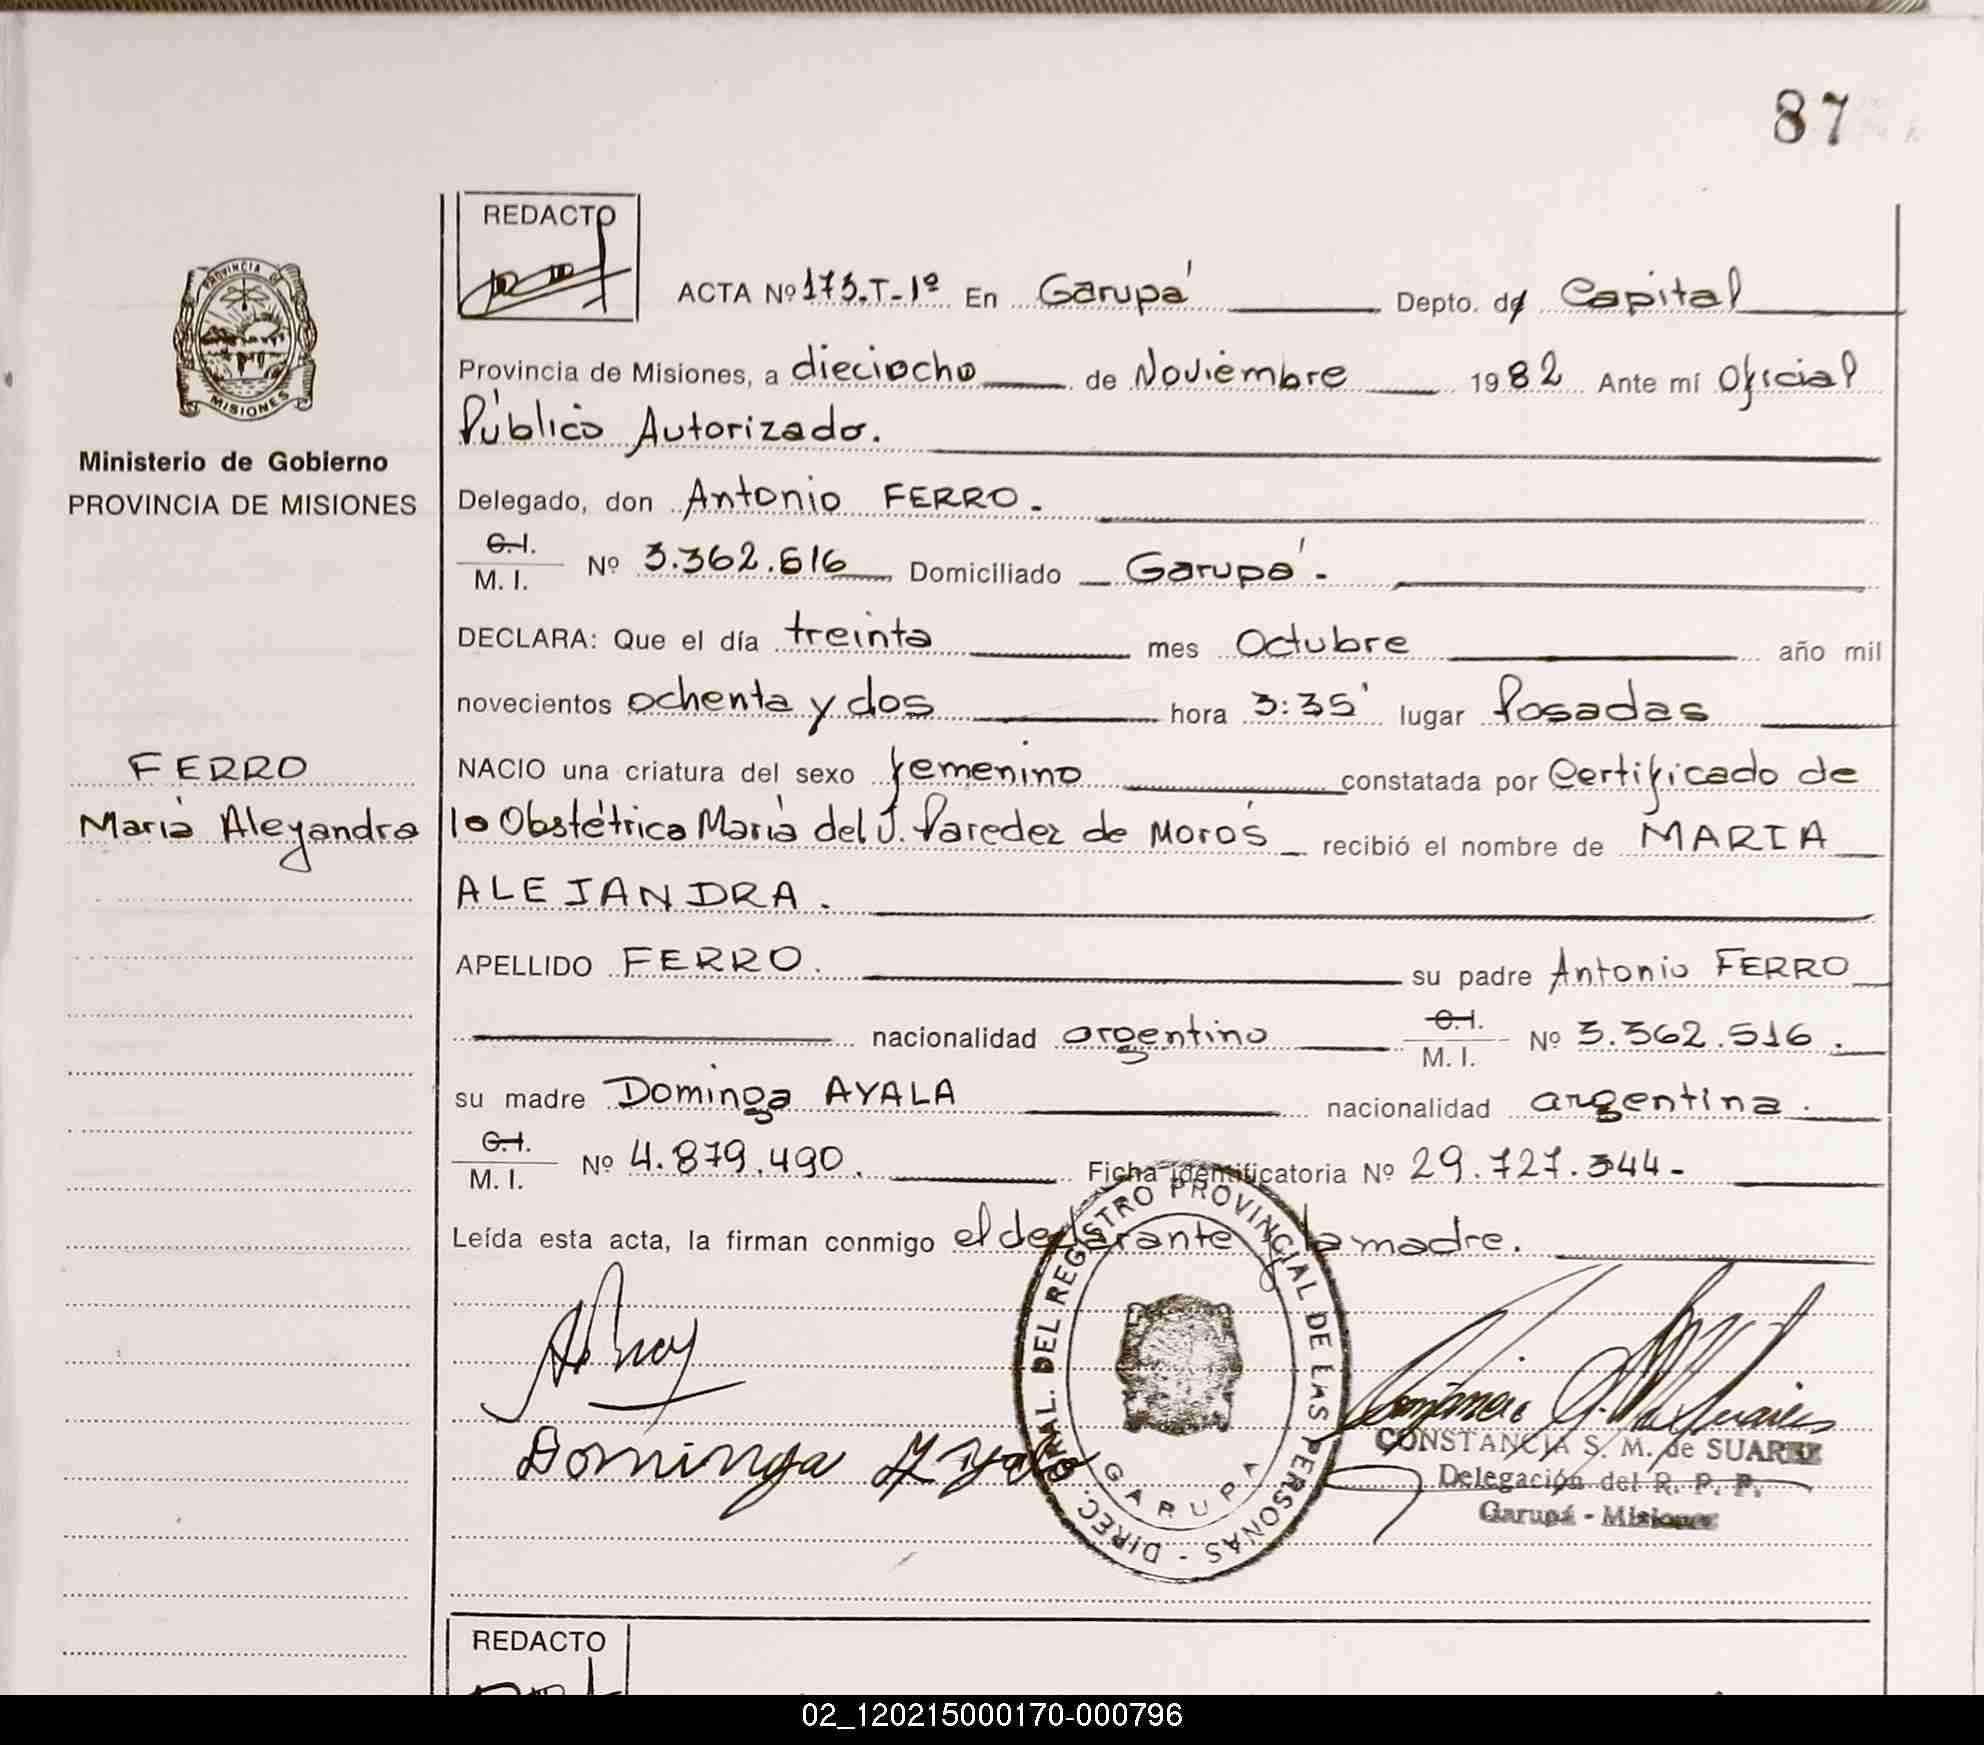 87
REDACTO
ACTA Nº 173.T-1º En Garupá Depto. de Capital
PROVINCIA DE
MISIONES
Provincia de Misiones, a dieciocho de Noviembre 1982 Ante mí Oficial
Público Autorizado.
Ministerio de Gobierno
PROVINCIA DE MISIONES
Delegado, don Antonio FERRO.
C.I.
M. I. Nº 3.362.516 Domiciliado Garupá.
DECLARA: Que el día treinta mes Octubre año mil
novecientos ochenta y dos hora 3:35' lugar Posadas
FERRO
María Alejandra
NACIO una criatura del sexo femenino constatada por Certificado de
la Obstétrica María del J. Paredez de Morós recibió el nombre de MARIA
ALEJANDRA.
APELLIDO FERRO. su padre Antonio FERRO
nacionalidad argentino C.I. M. I. Nº 3.362.516.
su madre Dominga AYALA nacionalidad argentina.
C.I.
M. I. Nº 4.879.490. Ficha identificatoria Nº 29.727.344-
Leída esta acta, la firman conmigo el declarante y la madre.
DIREC. GRAL. DEL REGISTRO PROVINCIAL DE LAS PERSONAS -
GARUPA
Dominga Ayala
CONSTANCIA S. M. de SUAREZ
Delegación del R. P. P.
Garupá - Misiones
REDACTO
02_120215000170-000796